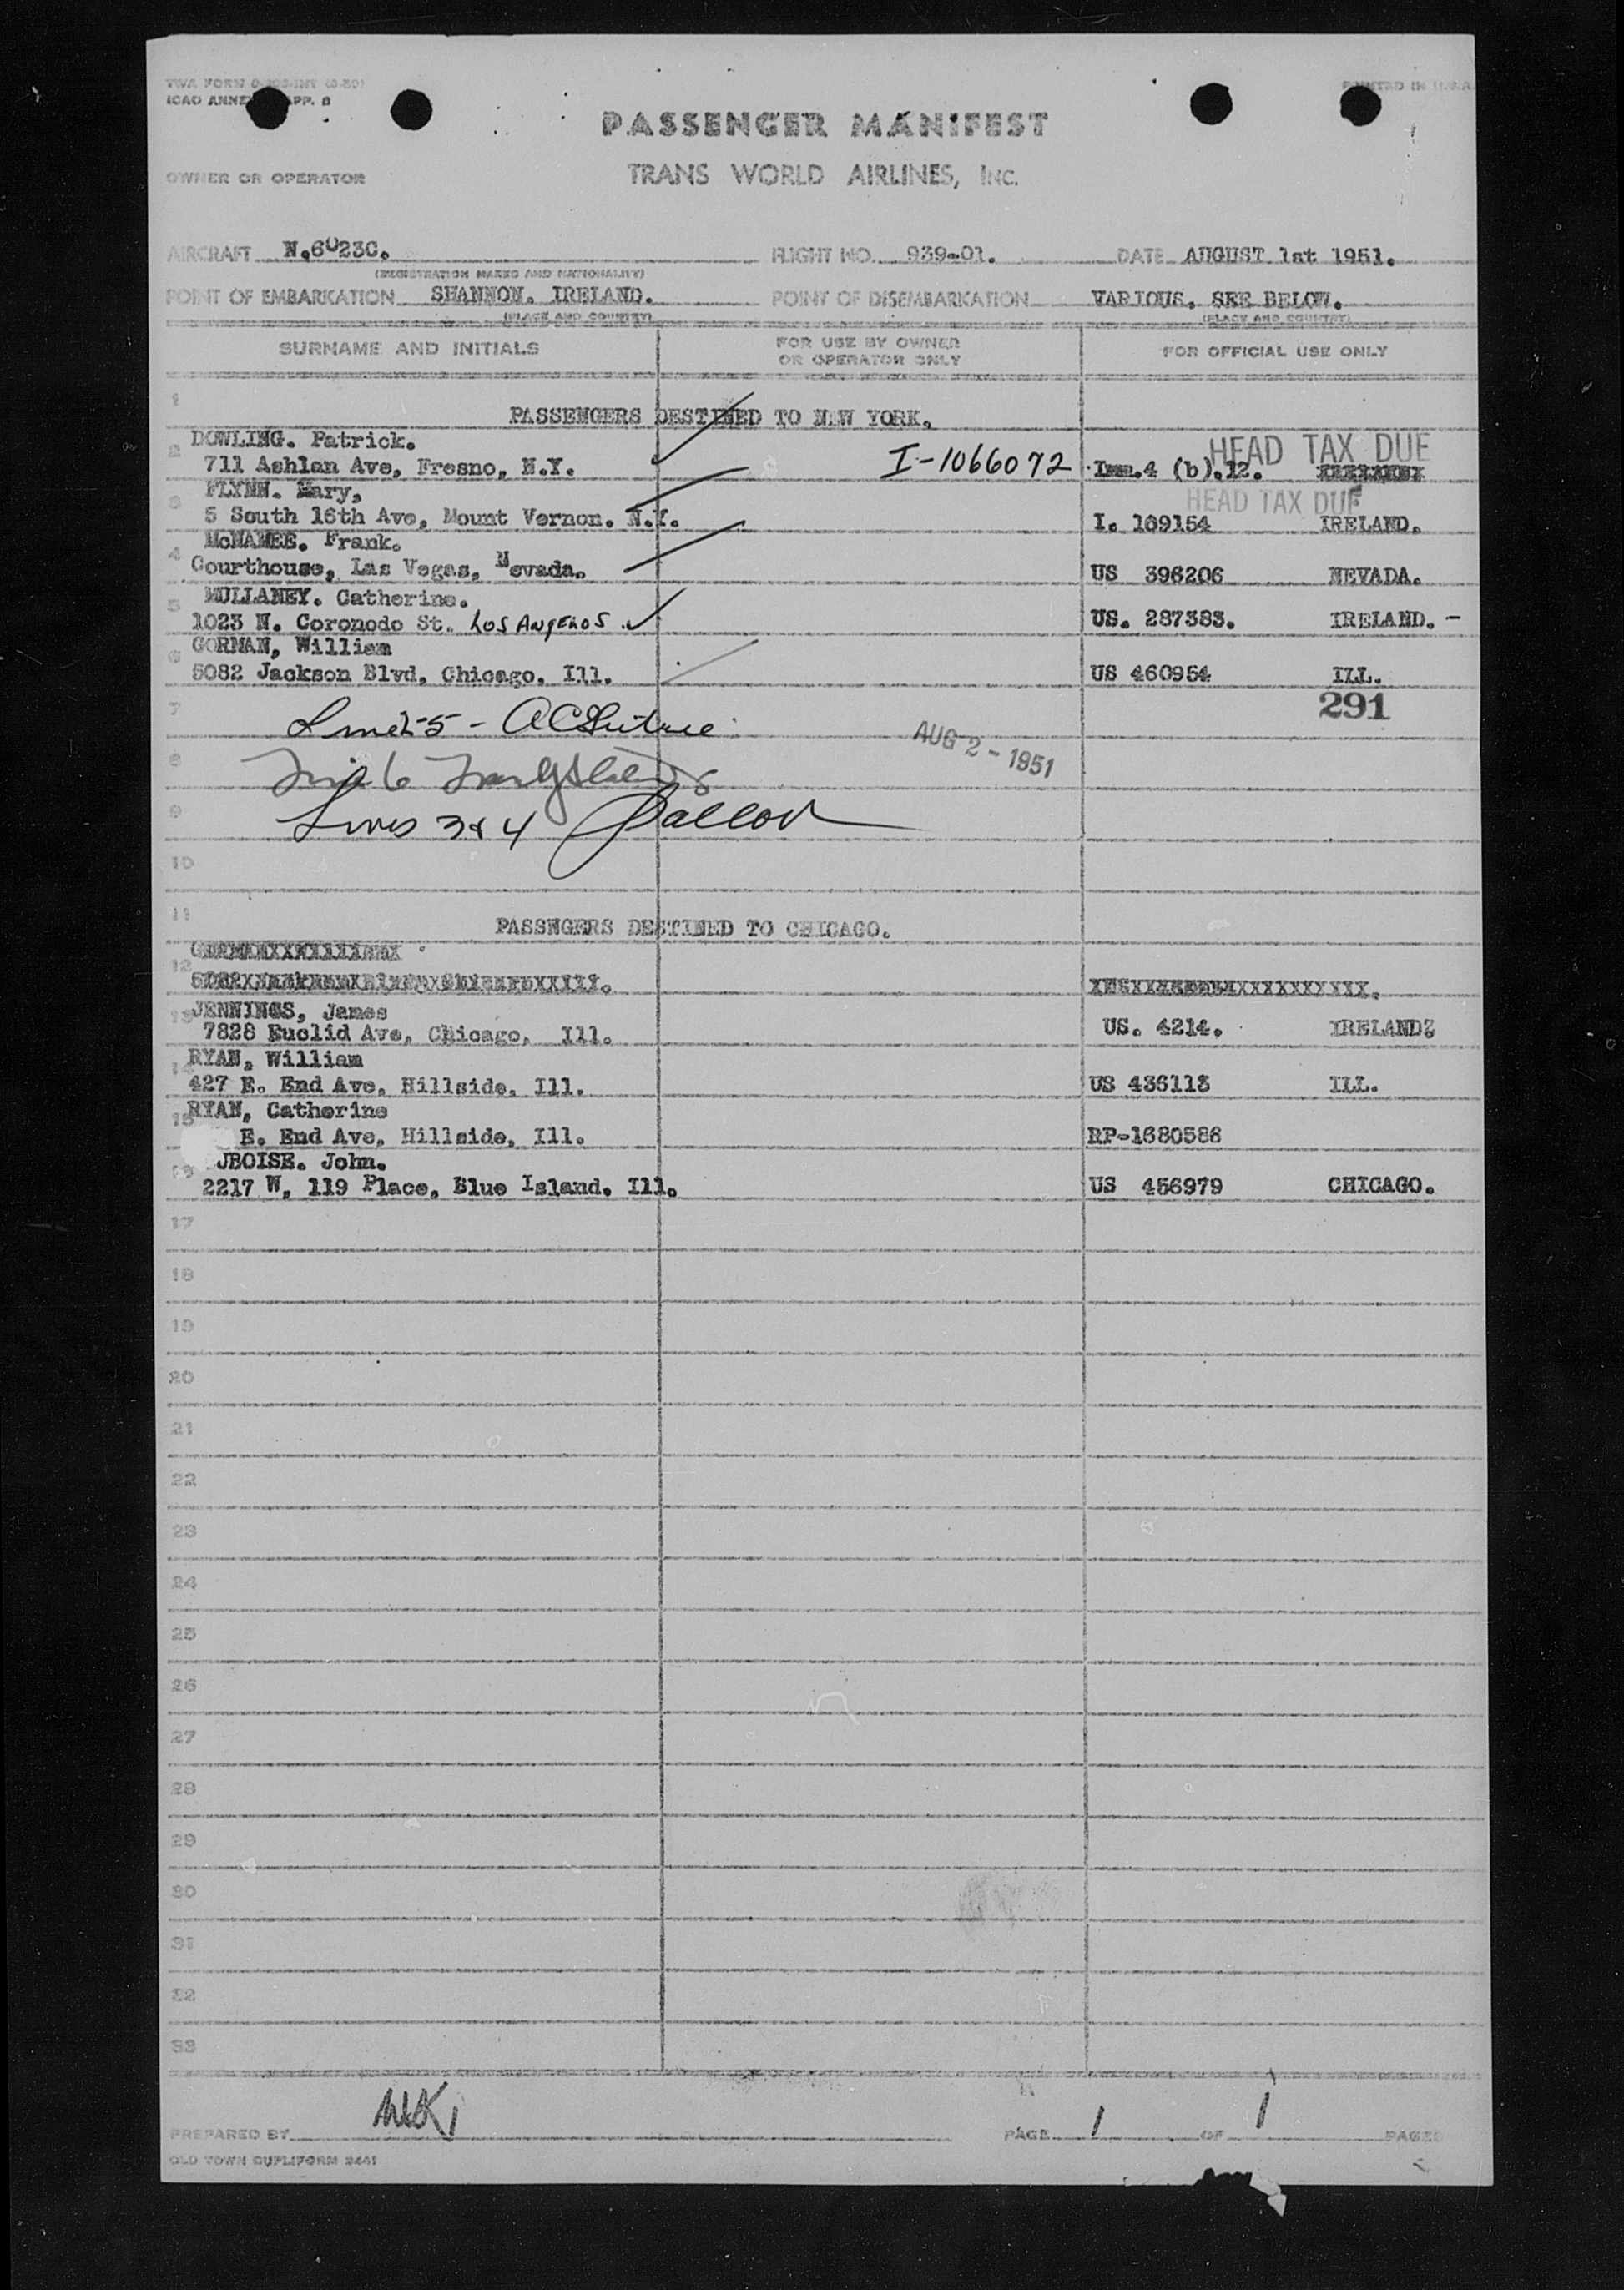 TWA FORM
PRINTED IN U.S.A.
ICAO ANNEX APP. 8
PASSENGER MANIFEST
OWNER OR OPERATOR
TRANS WORLD AIRLINES, INC.
AIRCRAFT N.6023C. FLIGHT NO. 939-01. DATE AUGUST 1st 1951.
(REGISTRATION MARKS AND NATIONALITY)
POINT OF EMBARKATION SHANNON. IRELAND. POINT OF DISEMBARKATION VARIOUS. SEE BELOW.
(PLACE AND COUNTRY) (PLACE AND COUNTRY)
SURNAME AND INITIALS FOR USE BY OWNER OR OPERATOR ONLY FOR OFFICIAL USE ONLY
1
PASSENGERS DESTINED TO NEW YORK.
2 DOWLING. Patrick. HEAD TAX DUE
711 Ashlan Ave, Fresno, N.Y. I-1066072 Imm.4 (b).12.
3 FLYNN. Mary, HEAD TAX DUE
5 South 16th Ave, Mount Vernon. N.Y. I. 109154 IRELAND.
4 McNAMEE. Frank.
Courthouse, Las Vegas, Nevada. US 396206 NEVADA.
5 MULLANEY. Catherine.
1023 N. Coronodo St. LOS ANGELOS. US. 287383. IRELAND. -
6 GORMAN, William
5082 Jackson Blvd, Chicago, Ill. US 460954 ILL.
7 291
AUG 2 - 1951
8
9 Lines 3 & 4
10
11
PASSNGERS DESTINED TO CHICAGO.
12
13 JENNINGS, James
7828 Euclid Ave, Chicago, Ill. US. 4214. IRELAND;
14 RYAN, William
427 E. End Ave, Hillside, Ill. US 436113 ILL.
15 RYAN, Catherine
E. End Ave, Hillside, Ill. RP-1680586
16 UBOISE. John.
2217 W. 119 Place, Blue Island. Ill. US 456979 CHICAGO.
17
18
19
20
21
22
23
24
25
26
27
28
29
30
31
32
33
PREPARED BY PAGE 1 OF 1 PAGES
OLD TOWN DUPLIFORM 2441